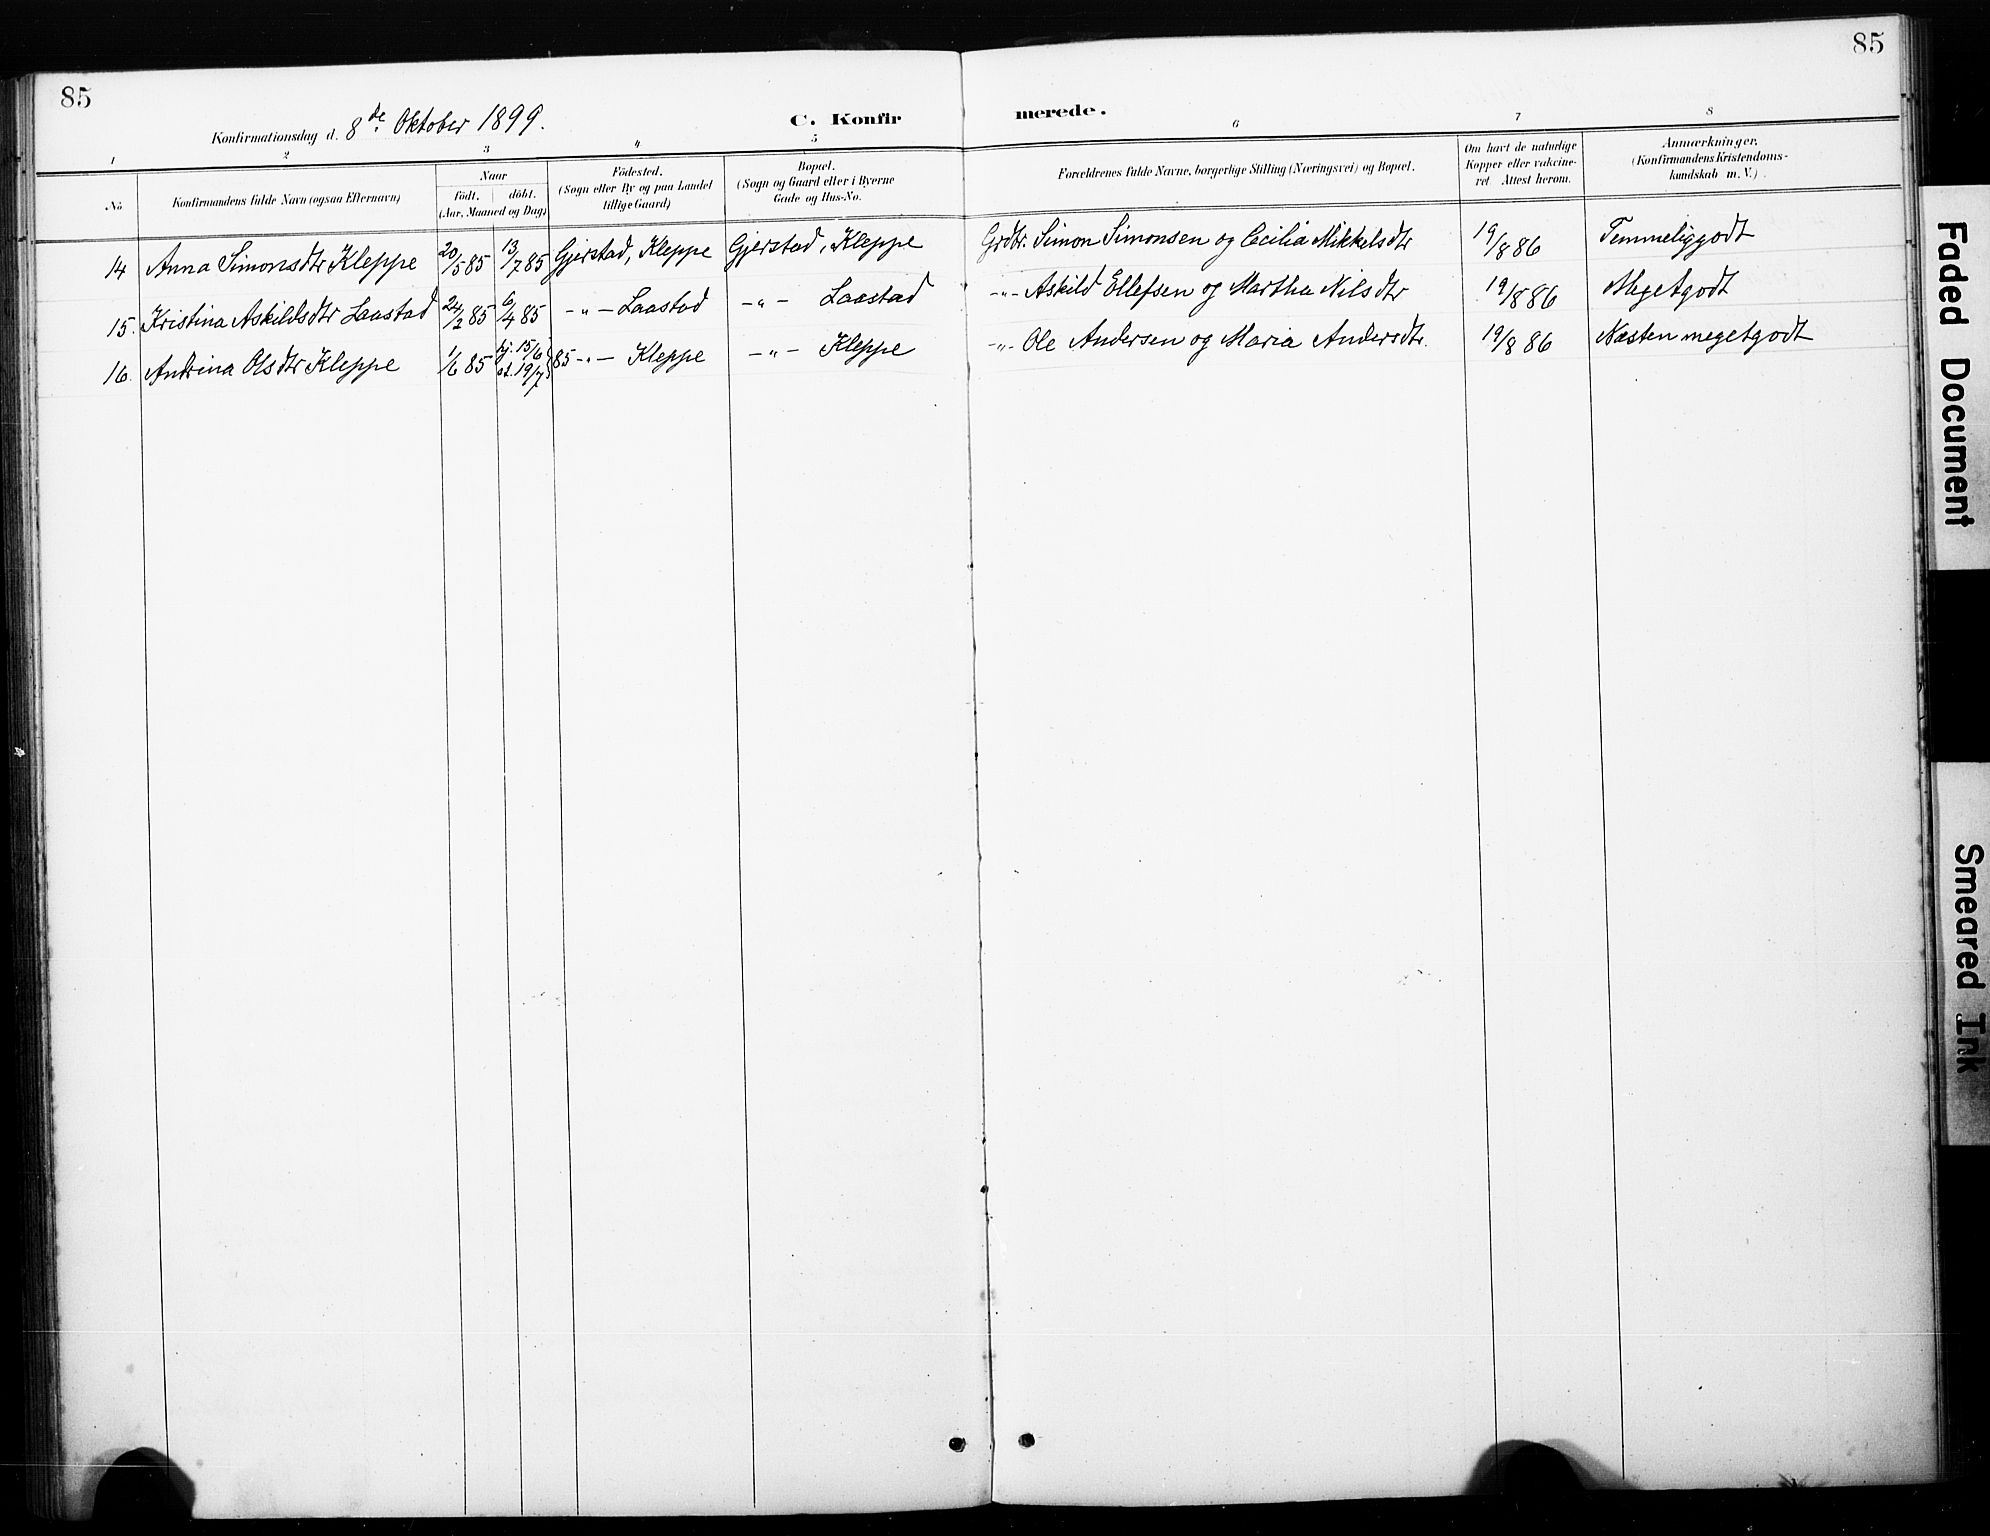 85
85
Konfirmationsdag d. 8de Oktober 1899.
C. Konfirmerede.
1 2 3 4 5 6 7 8
No
Konfirmandens fulde Navn (ogsaa Efternavn)
Naar
födt. döbt.
(Aar, Maaned og Dag)
Födested.
(Sogn eller By og paa Landet
tillige Gaard)
Bopæl.
(Sogn og Gaard eller i Byerne
Gade og Hus-No.
Forældrenes fulde Navne, borgerlige Stilling (Næringsvei) og Bopæl.
Om havt de naturlige
Kopper eller vakcine-
ret. Attest herom.
Anmærkninger.
(Konfirmandens Kristendoms-
kundskab m. V.).
14 Anna Simonsdtr Kleppe 20/5 85 13/7 85 Gjerstad, Kleppe Gjerstad, Kleppe Grdbr. Simon Simonsen og Cecilia Mikkelsdtr 19/8 86 Temmeliggodt
15. Kristina Askildsdtr Laastad 24/2 85 6/4 85 -"- Laastad -"- Laastad -"- Askild Ellefsen og Martha Nilsdtr 19/8 86 Megetgodt
16. Andrina Olsdtr Kleppe 1/6 85 hj. 15/6 st. 19/7 } 85 -"- Kleppe -"- Kleppe -"- Ole Andersen og Maria Andersdtr. 19/8 86 Næsten megetgodt
Faded Document
Smeared Ink